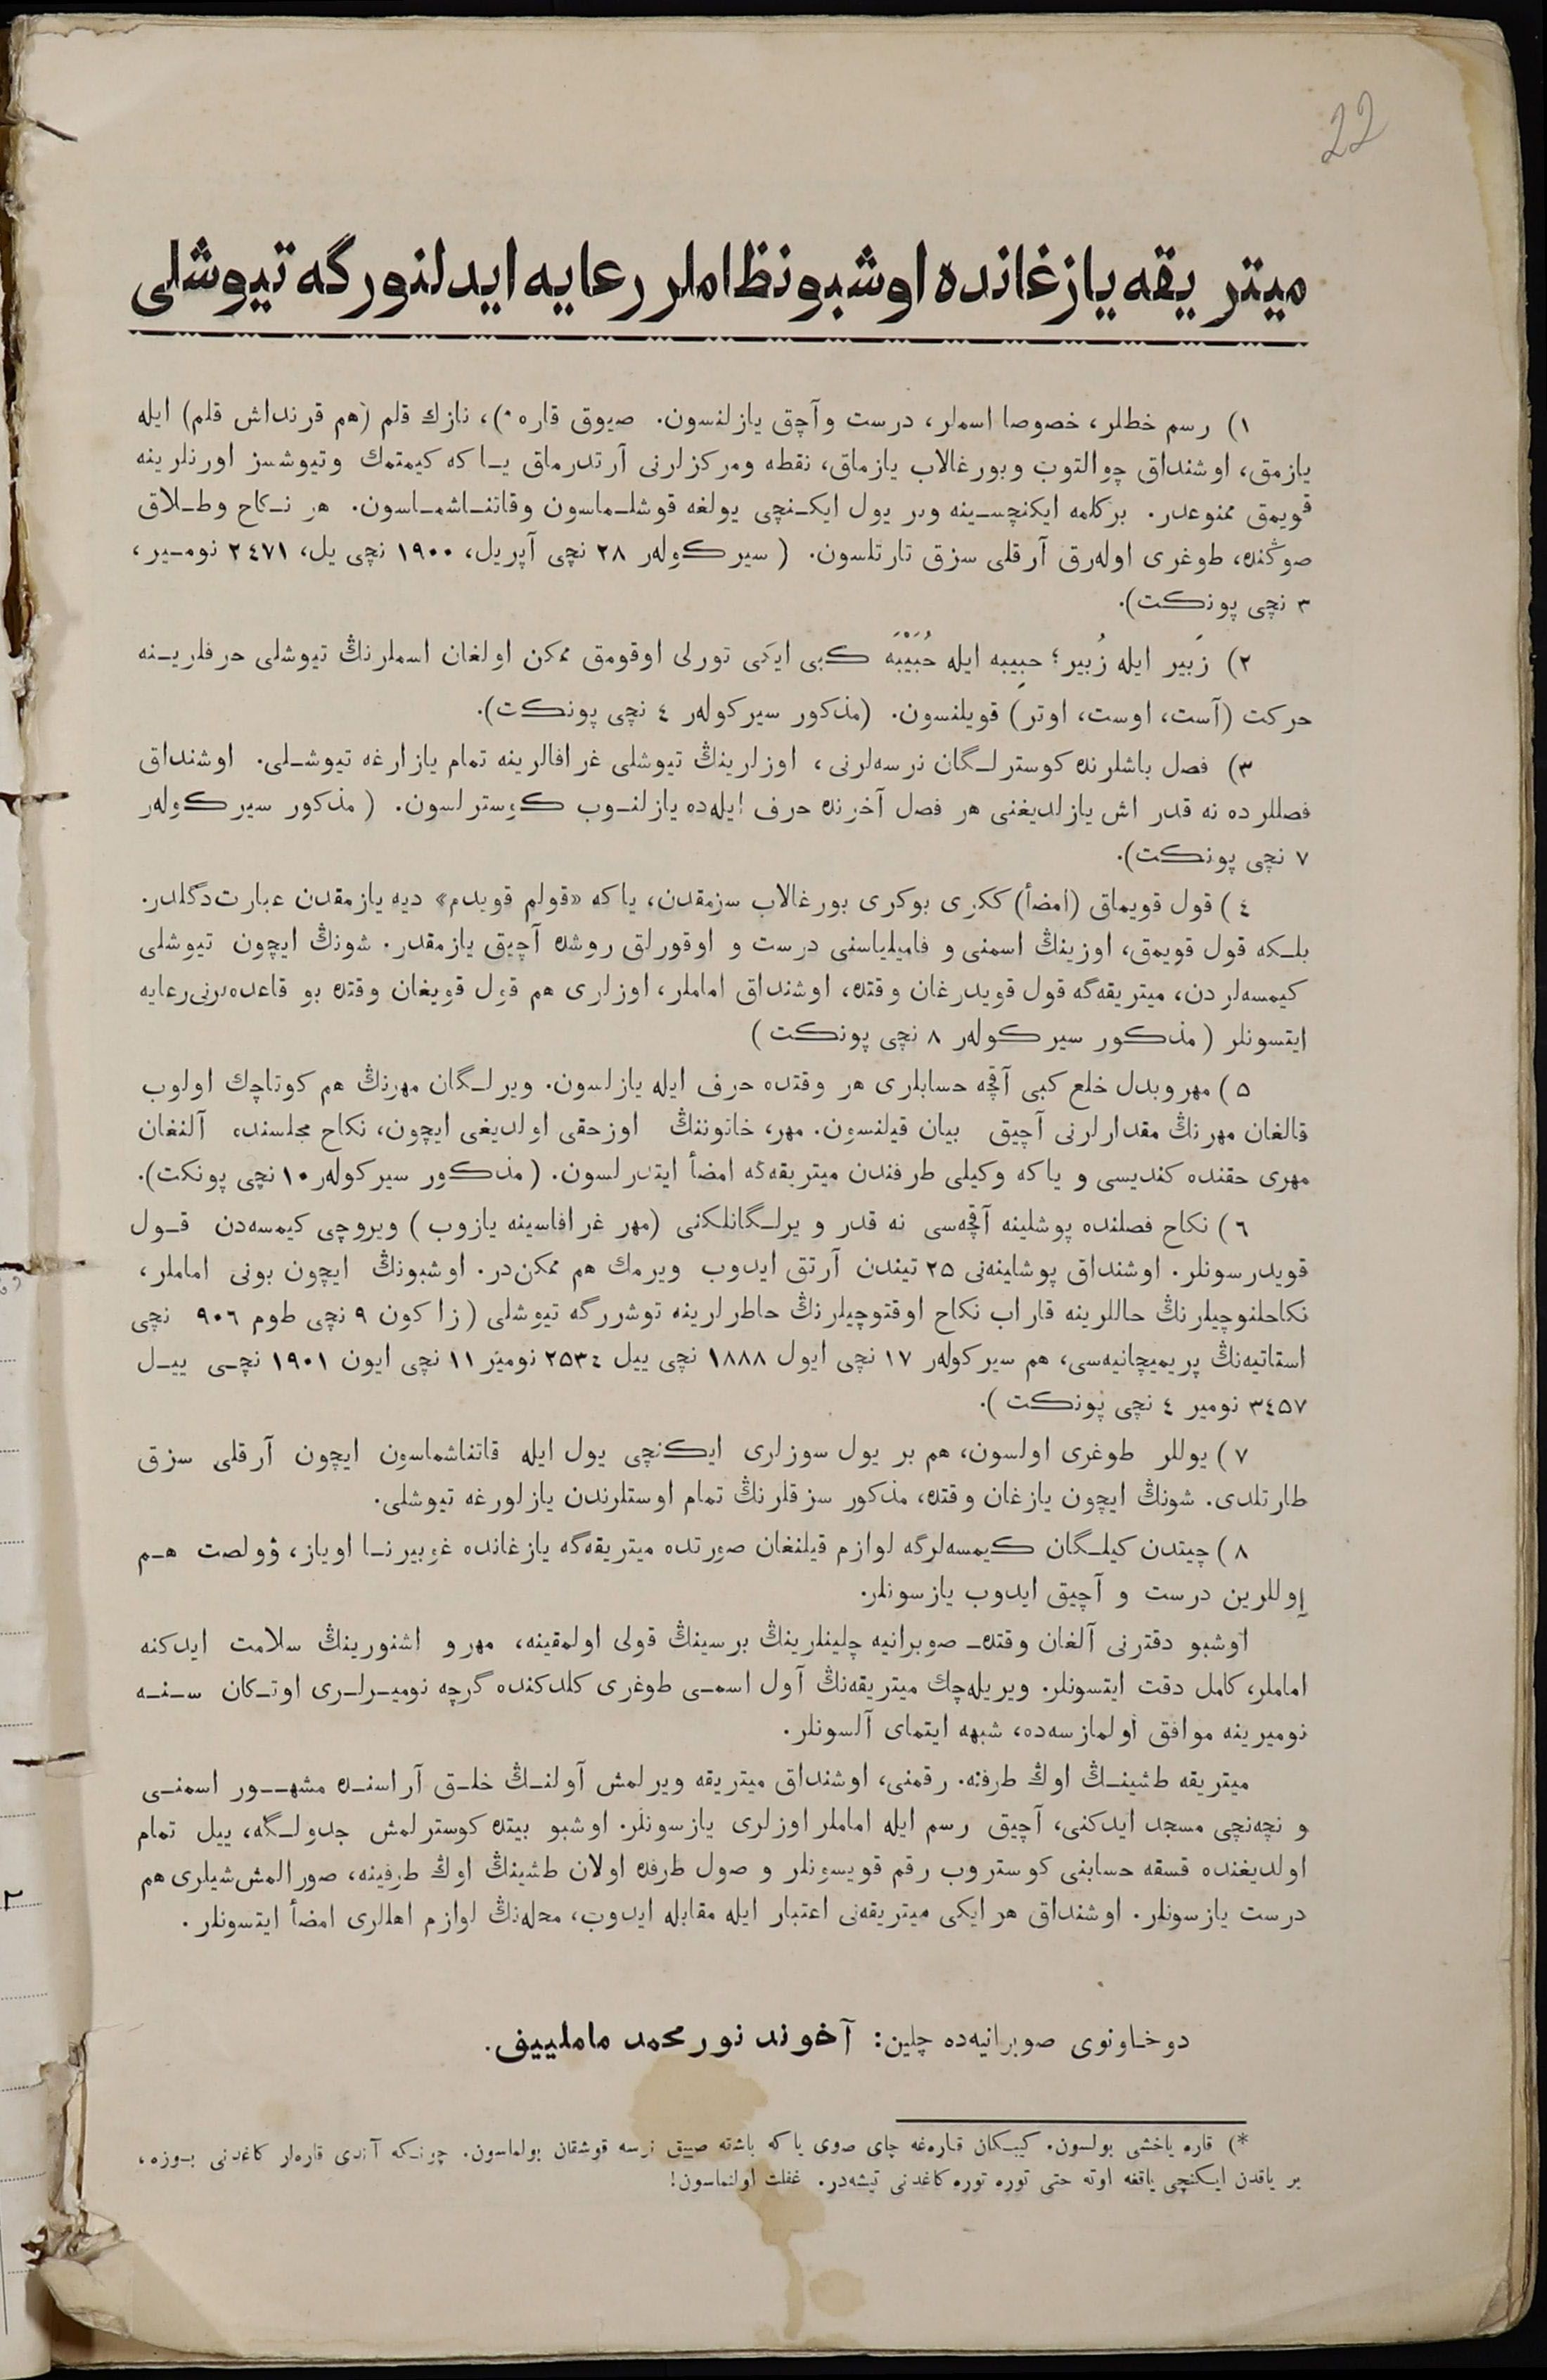 22
میتریقه یازغانده اوشبو نظاملر رعایه ایدلنورگه تیوشلی
۱) رسم خطلر، خصوصا اسملر، درست وآچق یازلنسون. صیوق قاره *)، نازك قلم (هم قرنداش قلم) ایله
یازمق، اوشنداق چوالتوب وبورغالاب یازماق، نقطه ومرکزلرنی آرتدرماق یـا که کیمتمك وتیوشسز اورنلرینه
قویمق ممنوعدر. برکلمه ایکنچسـینه وبر یول ایکـنچی یولغه قوشلـماسون وقاتنـاشمـاسون. هر نـکاح وطـلاق
صوڭنده، طوغری اوله‌رق آرقلی سزق تارتلسون. ( سیرکوله‌ر ۲۸ نچی آپریل، ۱۹۰۰ نچی یل، ۲٤۷۱ نومـیر،
۳ نچی پونکت).
۲) زَبیر ایله زُبیر؛ حبِیبه ایله حُبَیْبَه کبی ایکی تورلی اوقومق ممکن اولغان اسملرنڭ تیوشلی حرفلریـنه
حرکت (آست، اوست، اوتر) قویلنسون. (مذکور سیرکوله‌ر ٤ نچی پونکت).
۳) فصل باشلرنده کوسترلـگان نرسه‌لرنی، اوزلرینڭ تیوشلی غرافالرینه تمام یازارغه تیوشـلی. اوشنداق
فصللرده نه قدر اش یازلدیغنی هر فصل آخرنده حرف ایله‌ده یازلنـوب کوسترلسون. ( مذکور سیرکوله‌ر
۷ نچی پونکت).
٤) قول قویماق (امضأ) ککری بوکری بورغالاب سزمقدن، یاکه «قولم قویدم» دیه یازمقدن عبارت‌دگلدر.
بلـکه قول قویمق، اوزینڭ اسمنی و فامیلیاسنی درست و اوقورلق روشده آچیق یازمقدر. شونڭ ایچون تیوشلی
کیمسه‌لردن، میتریقه‌گه قول قویدرغان وقتده، اوشنداق اماملر، اوزلری هم قول قویغان وقتده بو قاعده‌لرنی‌رعایه
ایتسونلر ( مذکور سیرکوله‌ر ۸ نچی پونکت )
۵) مهروبدل خلع کبی آقچه حسابلری هر وقتده حرف ایله یازلسون. ویرلـگان مهرنڭ هم کوتاچك اولوب
قالغان مهرنڭ مقدارلرنی آچیق بیان قیلنسون. مهر، خاتوننڭ اوزحقی اولدیغی ایچون، نکاح مجلسنده آلنغان
مهری حقنده کندیسی و یاکه وکیلی طرفندن میتریقه‌گه امضأ ایتدرلسون. ( مذکور سیرکوله‌ر ۱۰ نچی پونکت).
٦) نکاح فصلنده پوشلینه آقچه‌سی نه قدر ویرلـگانلکنی (مهر غرافاسینه یازوب ) ویروچی کیمسه‌دن قـول
قویدرسونلر. اوشنداق پوشلینه‌نی ۲۵ تیندن آرتق ایدوب ویرمك هم ممکن‌در. اوشبونڭ ایچون بونی اماملر،
نکاحلنوچیلرنڭ حاللرینه قاراب نکاح اوقتوچیلرنڭ خاطرلرینه توشررگه تیوشلی ( زاکون ۹ نچی طوم ۹۰٦ نچی
استاتیه‌نڭ پریمیچانیه‌سی، هم سیرکوله‌ر ۱۷ نچی ایول ۱۸۸۸ نچی ییل ۲۵۳٤ نومیر ۱۱ نچی ایون ۱۹۰۱ نچـی ییـل
۳٤۵۷ نومیر ٤ نچی پونکت ).
۷) یوللر طوغری اولسون، هم بر یول سوزلری ایکنچی یول ایله قاتناشماسون ایچون آرقلی سزق
طارتلدی. شونڭ ایچون یازغان وقتده، مذکور سزقلرنڭ تمام اوستلرندن یازلورغه تیوشلی.
۸) چیتدن کیلـگان کیمسه‌لرگه لوازم قیلنغان صورتده میتریقه‌گه یازغانده غوبیرنـا اویاز، ۋولصت هـم
إوللرین درست و آچیق ایدوب یازسونلر.
اوشبو دفترنی آلغان وقتده‌ـ صوبرانیه چلینلرینڭ برسینڭ قولی اولمقینه، مهرو اشنورینڭ سلامت ایدکنه
اماملر، کامل دقت ایتسونلر. ویریله‌چك میتریقه‌نڭ آول اسمـی طوغری کلدکنده گرچه نومیـرلـری اوتـکان سـنـه
نومیرینه موافق اولمازسه‌ده، شبهه ایتمای آلسونلر.
میتریقه طشینـڭ اوڭ طرفنه. رقمنی، اوشنداق میتریقه ویرلمش آولنـڭ خلـق آراسنـده مشهــور اسمنـی
و نچه‌نچی مسجد ایدکنی، آچیق رسم ایله اماملر اوزلری یازسونلر. اوشبو بیتده کوسترلمش جدولـگه، ییل تمام
اولدیغنده قسقه حسابنی کوستروب رقم قویسونلر و صول طرفده اولان طشینڭ اوڭ طرفینه، صورالمش‌شیلری هم
درست یازسونلر. اوشنداق هر ایکی میتریقه‌نی اعتبار ایله مقابله ایدوب، محله‌نڭ لوازم اهللری امضأ ایتسونلر.
دوخـاونوی صوبرانیه‌ده چلین: آخوند نورمحمد ماملییف.
*) قاره یاخشی بولسون. کیبـکان قاره‌غه چای صوی یاکه باشته صییق نرسه قوشقان بولماسون. چونـکه آندی قاره‌لر کاغدنی بـوزه،
بر یاقدن ایـکنچی یاقغه اوته حتی توره توره کاغدنی تیشه‌در. غفلت اولنماسون!